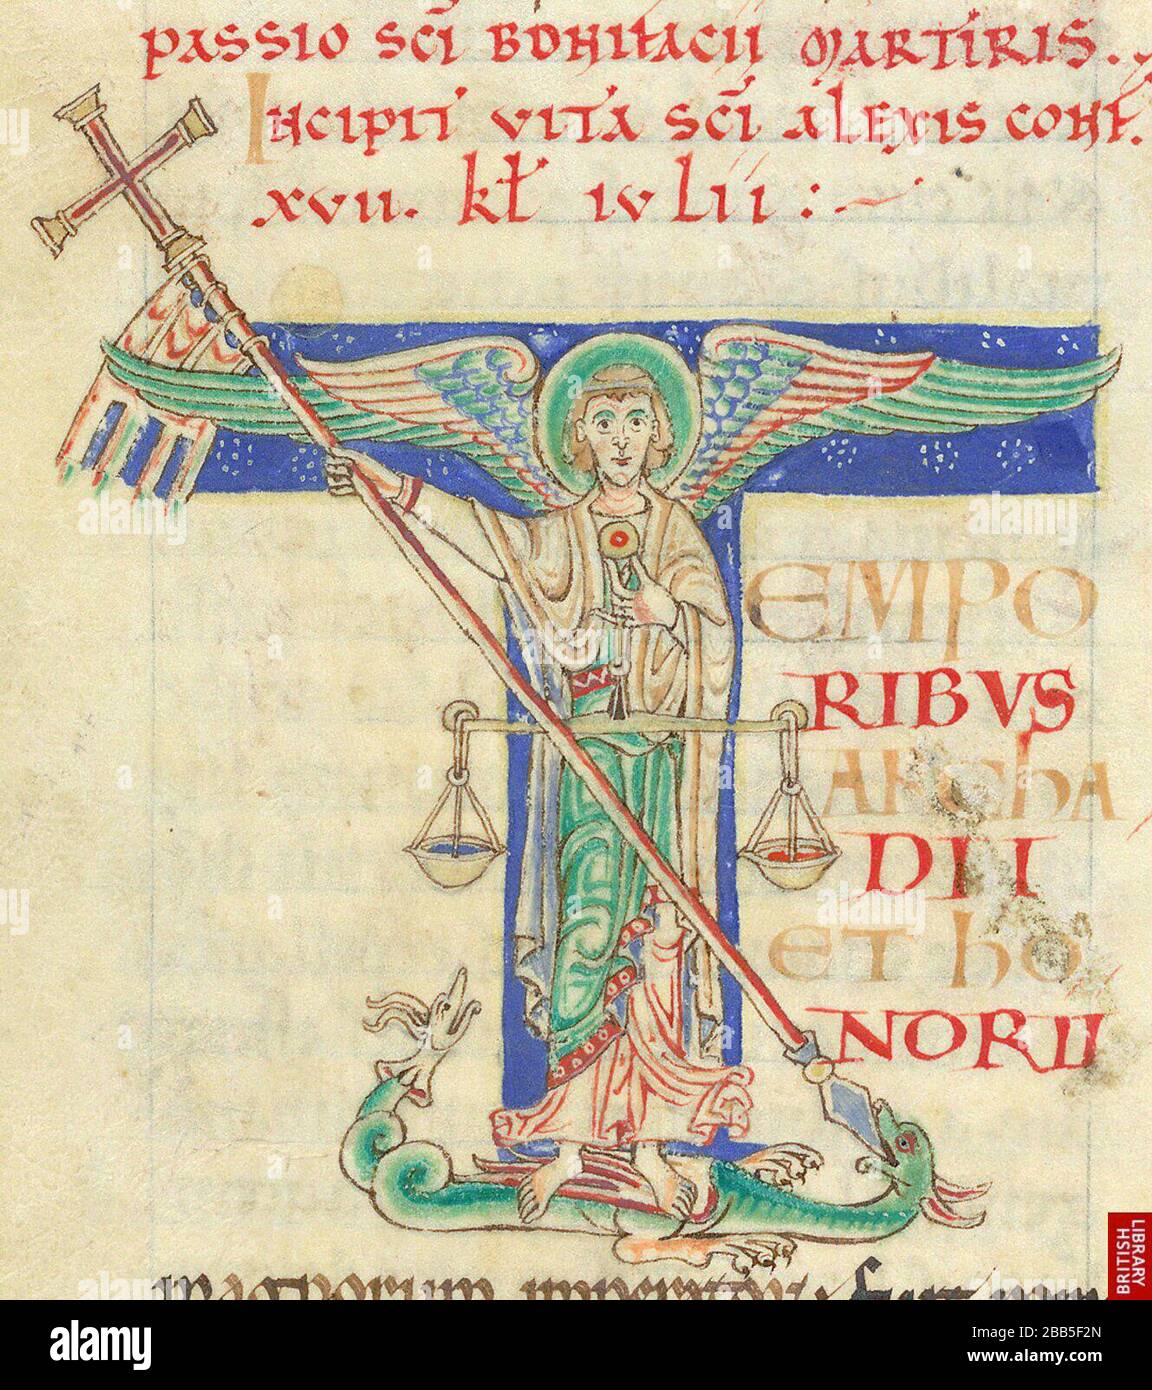 PASSIO SCĪ BONIFACII MARTIRIS.
INCIPIT VITA SCĪ ALEXIS CONF.
XVII. KŁ IVLII :
T
EMPO
RIBVS
ARCHA
DII
ET HO
NORII
magnorum imperatorum
BRITISH
LIBRARY
alamy
Image ID: 2BB5F2N
www.alamy.com